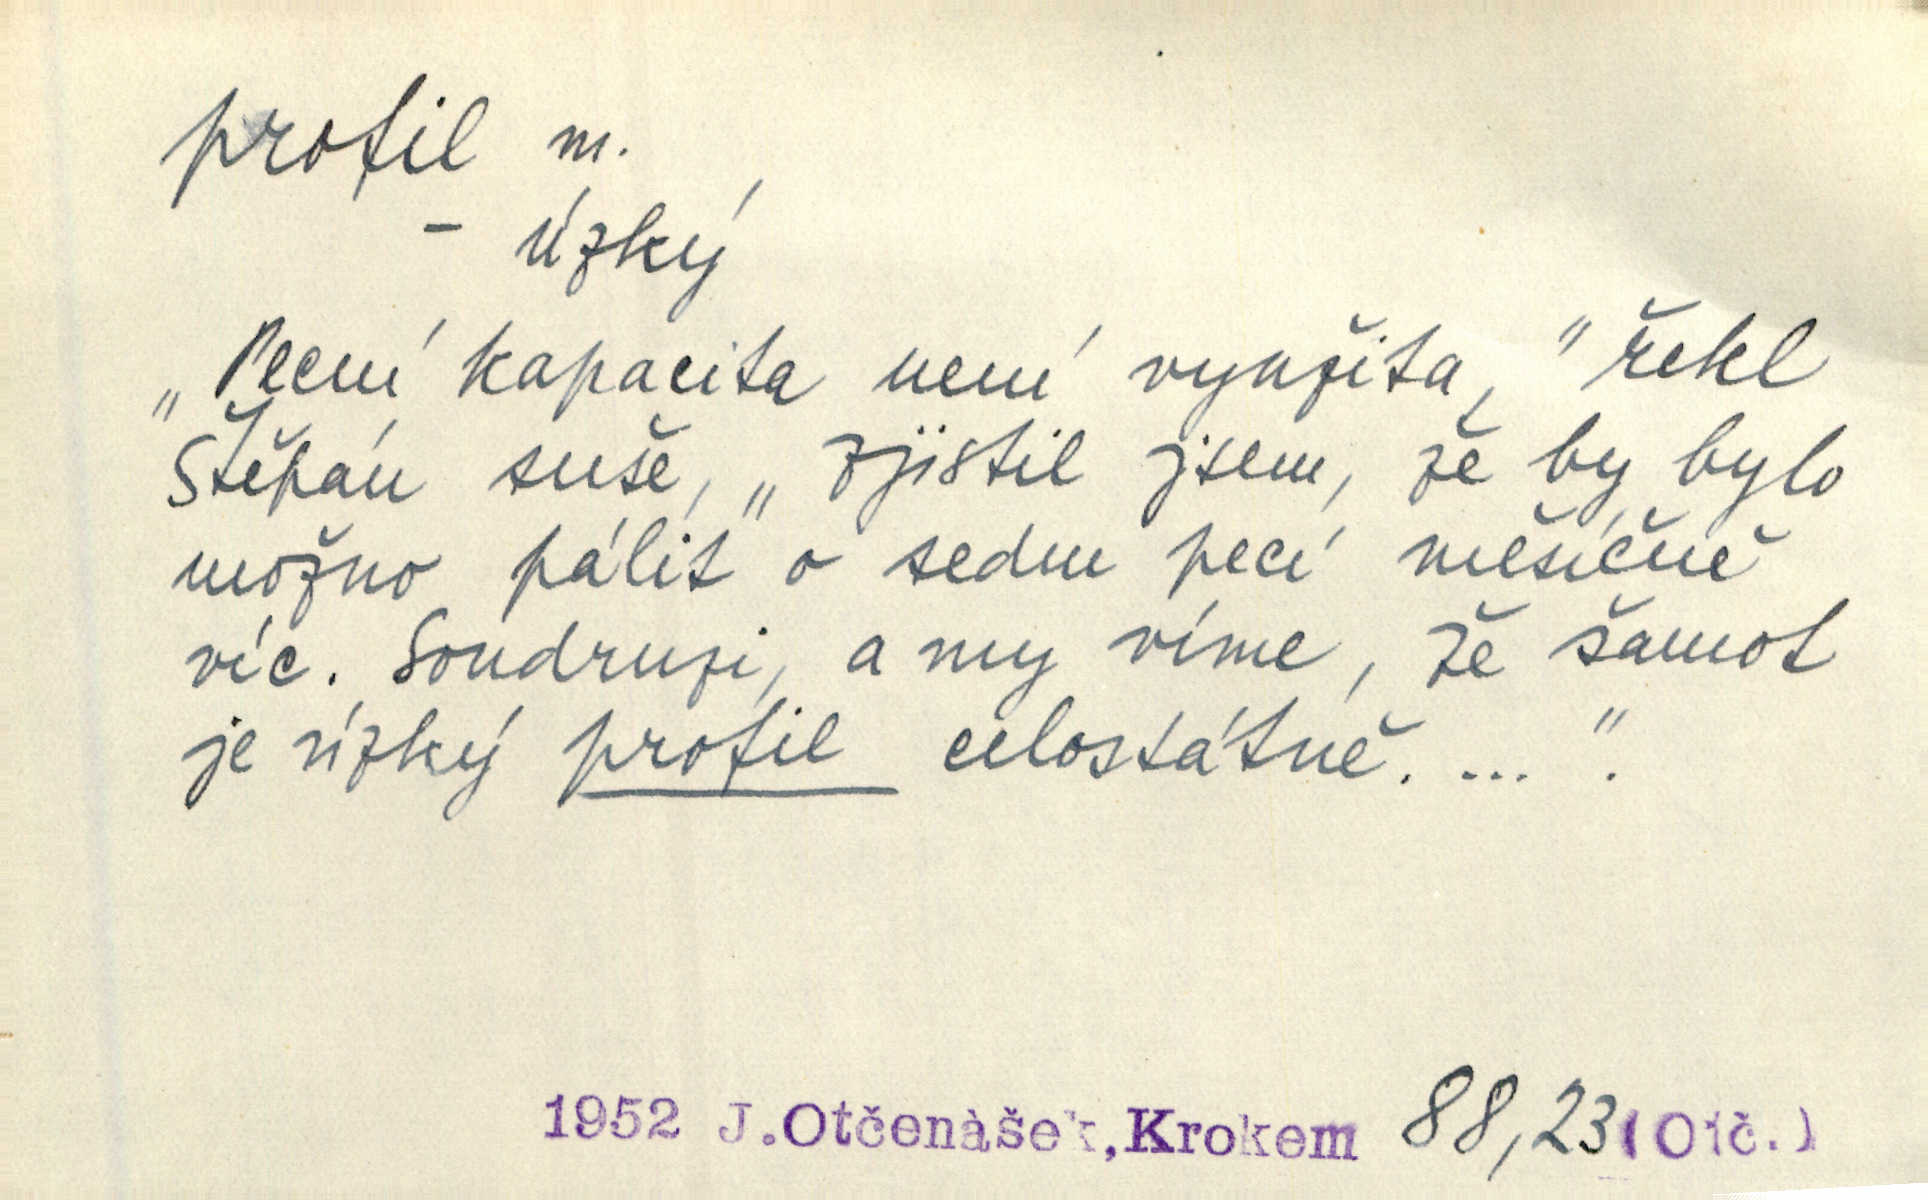 profil m.
- úzký
„Pecní kapacita není využita," řekl
Štěpán suše, „zjistil jsem, že by bylo
možno pálit o sedm pecí měsíčně
víc. Soudruzi, a my víme, že šamot
je úzký profil celostátně. ...".
1952 J.Otčenášek,Krokem 88,23 (Otč.)